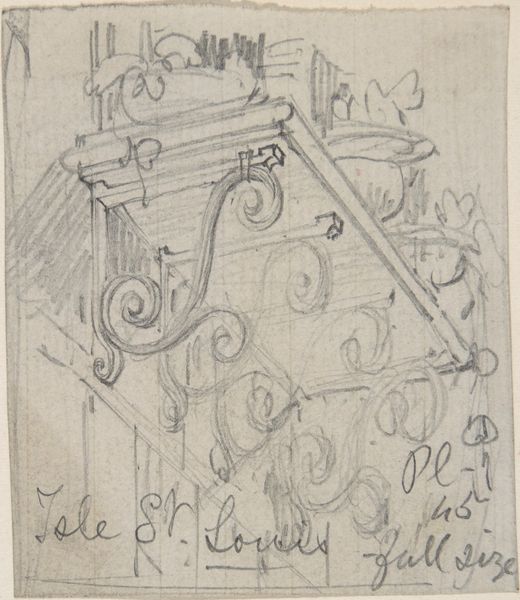 Isle St. Louis
Pl-1
45
full size